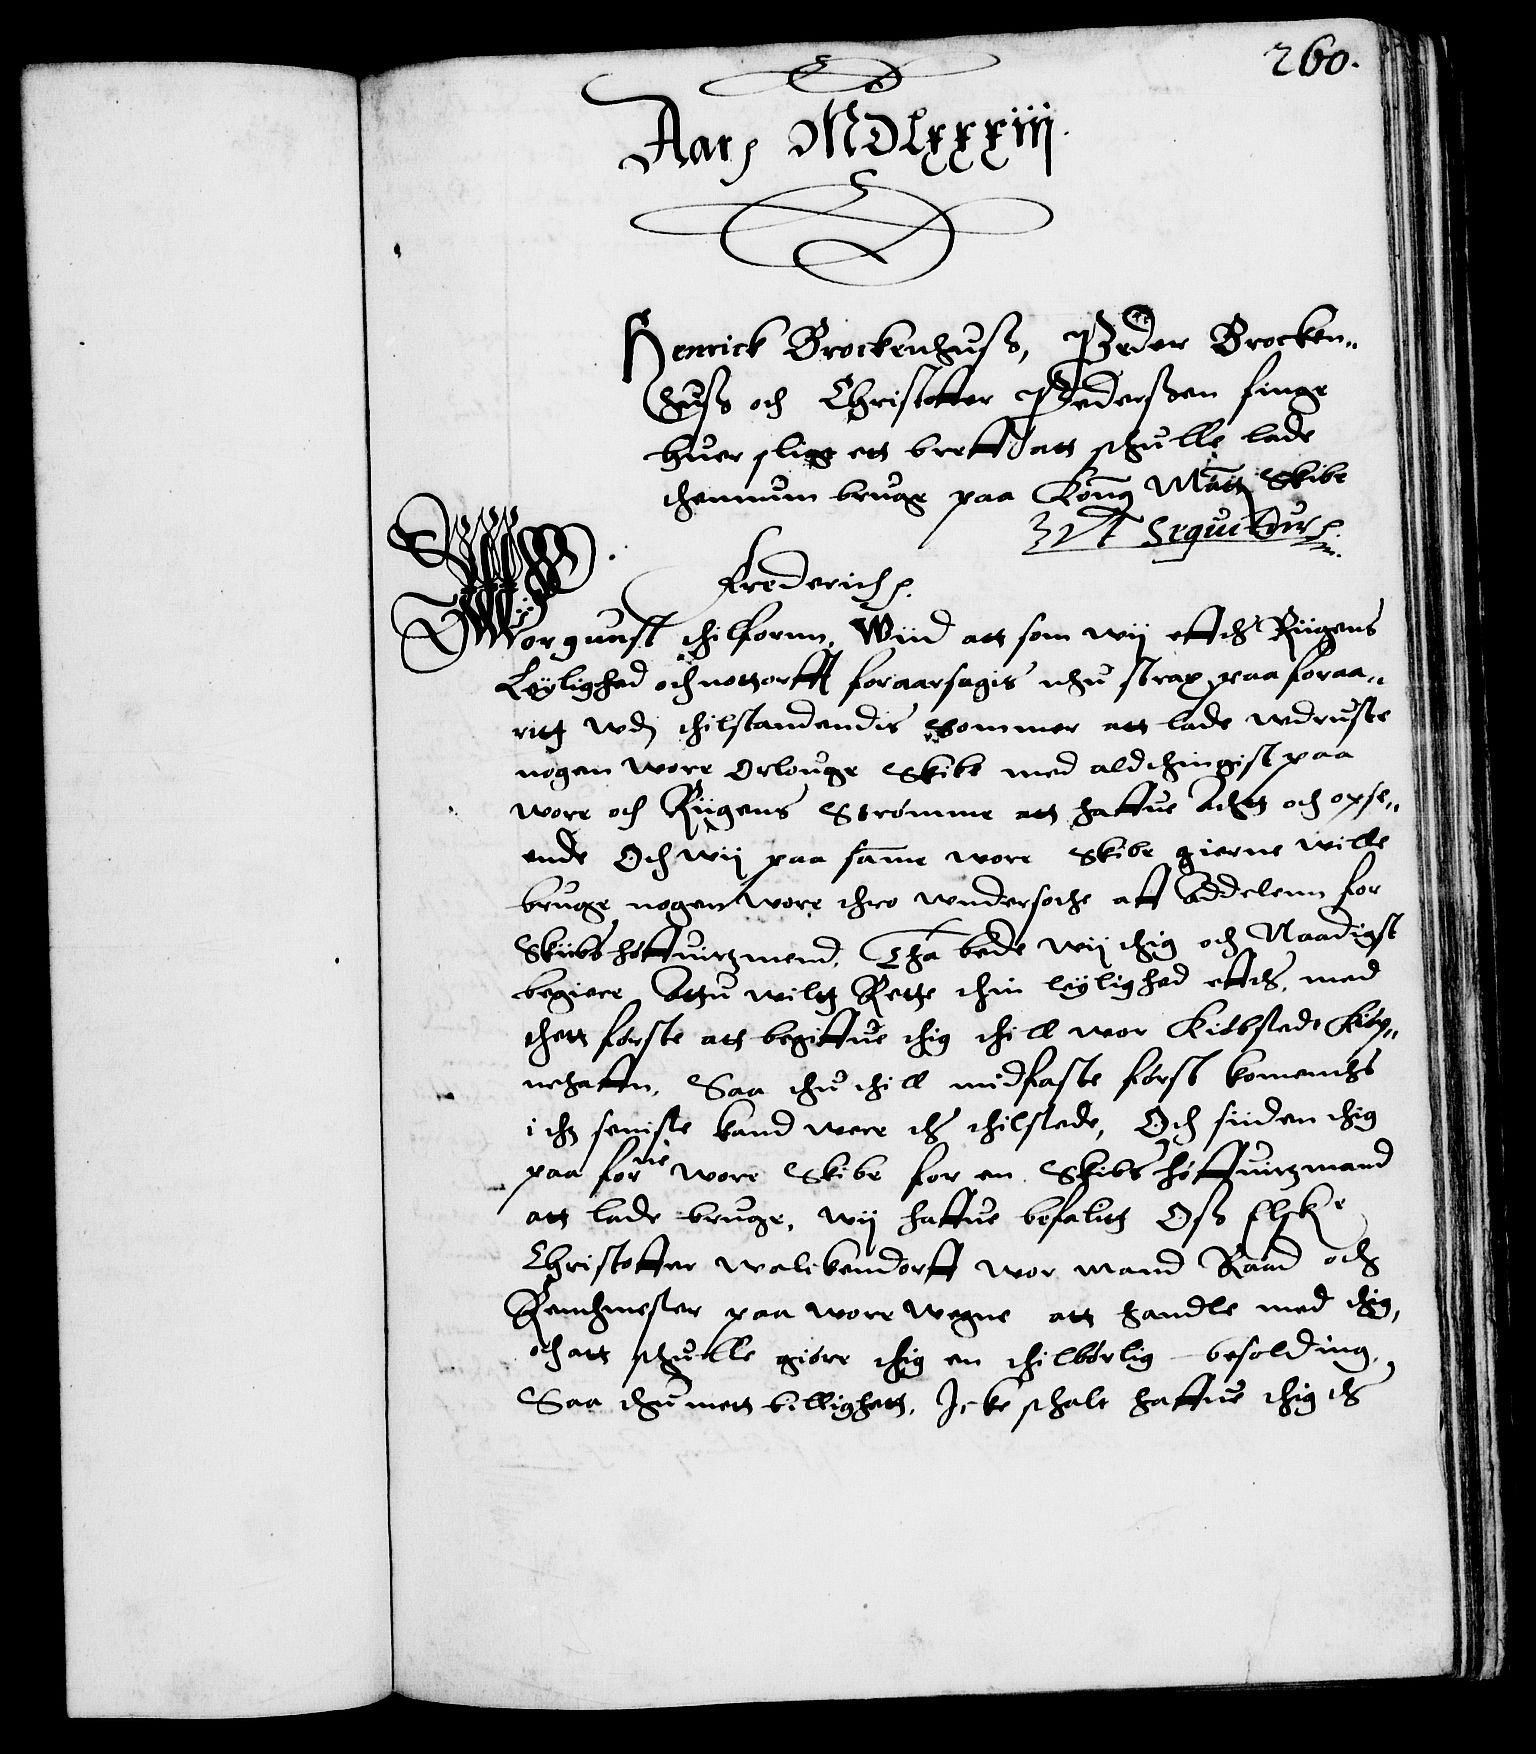 260.
Aars MDLxxxiij.
Henrick Brockenhuss, Peder Brocken„
huss och Christoffer Pederssen finge
huer sligt ett breff att schulle lade
thennum bruge paa Kong Matts Skibe
Vt Sequitur
Frederich
Wor gunst thilfornn, Wiid att som wij effther Riigens
Leylighed och nottorfft foraarsagis nhu strax paa foraa„
ritt vdj thilstandendis Sommer att lade wdruste
nogen wore Orlouge Skibe med aldthingist paa
wore och Riigens Strømme att haffue Acht och opse„
ende Och wij paa samme wore Skibe gierne wille
bruge nogen wore thro wndersothe aff Addelenn for
Skiibs høffuitzmend, Tha bede wij thig och Naadigst
begiere Attu wiltt Rette thin leylighed effther, med
thett første att begiffue thig thill wor Kiøbstedt Kiøp„
nehaffn, Saa thu thill midfaste først komendis
i thz seniste kand were ther thilstede, Och siiden thig
paa forne wore Skibe for en Skibs høffuitzmand
att lade bruge, wij haffue befalitt Oss Elske
Christoffer Walckendorff wor mand Raad och
Rentmester paa wore wegne att handle med thig,
och att schulle giøre thig en thilbørlig besolding,
Saa thu mett billighett, Icke schalt haffue thig ther